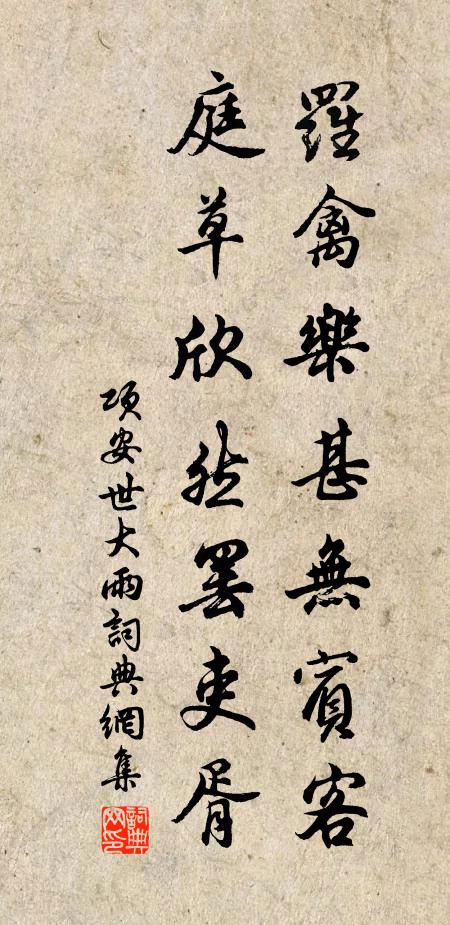 羅禽樂甚無賓客
庭草欣然罷吏胥
項安世大雨詞典網集
詞典網印